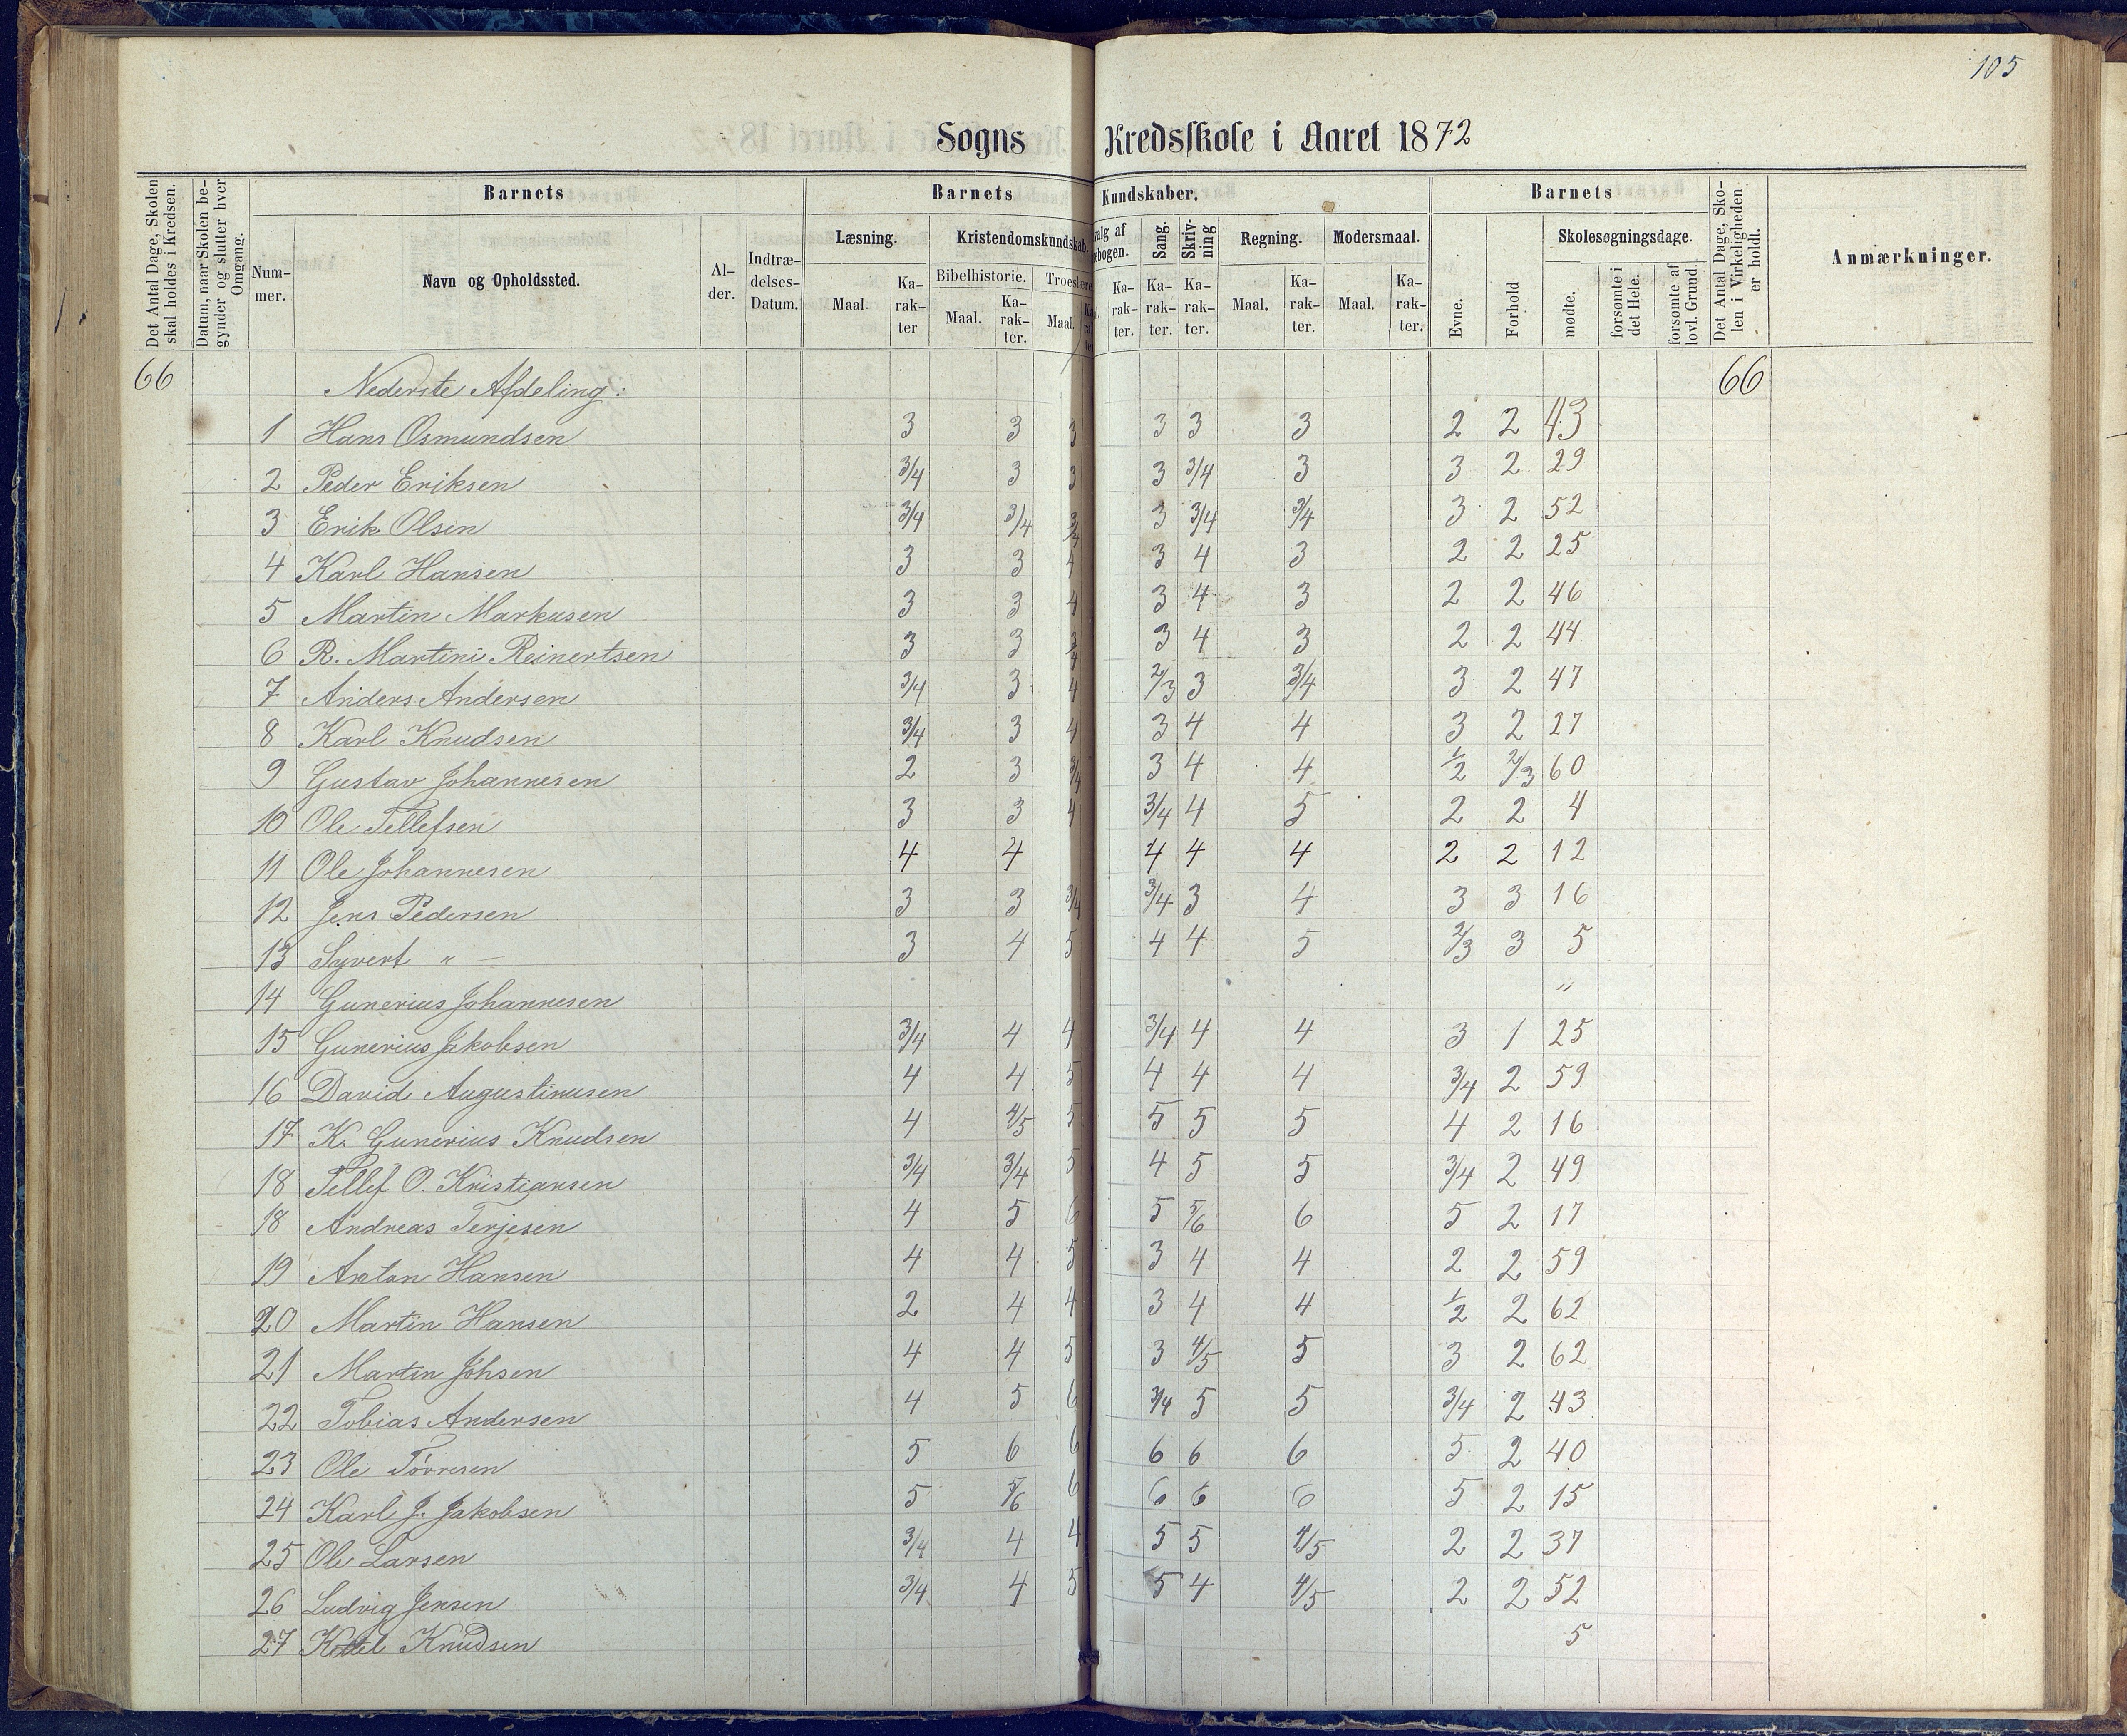 105
Sogns Kredsskole i Aaret 1872
Det Antal Dage, Skolen skal holdes i Kredsen.
Datum, naar Skolen begynder og slutter hver Omgang.
Barnets
Nummer.
Navn og Opholdssted.
Alder.
Indtrædelses-Datum.
Barnets Kundskaber.
Læsning.
Maal.
Karakter
Kristendomskundskab.
Bibelhistorie.
Maal.
Karakter.
Troeslære
Maal.
valg af
ebogen.
Karakter.
Sang.
Karakter.
Skrivning
Karakter.
Regning.
Maal.
Karakter.
Modersmaal.
Maal.
Karakter.
Barnets
Evne.
Forhold
Skolesøgningsdage.
mødte.
forsømte i det Hele.
forsømte af lovl. Grund.
Det Antal Dage, Skolen i Virkeligheden er holdt.
Anmærkninger.
66 Nederste Afdeling: 66
1 Hans Osmundsen 3 3 3 3 3 3 2 2 43
2 Peder Eriksen 3/4 3 3 3 3/4 3 3 2 29
3 Erik Olsen 3/4 3/4 3/4 3 3/4 3/4 3 2 52
4 Karl Hansen 3 3 4 3 4 3 2 2 25
5 Martin Markusen 3 3 4 3 4 3 2 2 46
6 R. Martini Reinertsen 3 3 3/4 3 4 3 2 2 44
7 Anders Andersen 3/4 3 4 2/3 3 3/4 3 2 47
8 Karl Knudsen 3/4 3 4 3 4 4 3 2 27
9 Gustav Johannesen 2 3 3/4 3 4 4 1/2 2/3 60
10 Ole Tellefsen 3 3 4 3/4 4 5 2 2 4
11 Ole Johannesen 4 4 4 4 4 2 2 12
12 Jens Pedersen 3 3 3/4 3/4 3 4 3 3 16
13 Syvert " — 3 4 5 4 4 5 2/3 3 5
14 Gunerius Johannesen "
15 Gunerius Jakobsen 3/4 4 4 3/4 4 4 3 1 25
16 David Augustinusen 4 4 5 4 4 4 3/4 2 59
17 K. Gunerius Knudsen 4 4/5 5 5 5 5 4 2 16
18 Tellef O. Kristiansen 3/4 3/4 5 4 5 5 3/4 2 49
18 Andreas Terjesen 4 5 6 5 5/6 6 5 2 17
19 Anton Hansen 4 4 5 3 4 4 2 2 59
20 Martin Hansen 2 4 4 3 4 4 1/2 2 62
21 Martin Johsen 4 4 5 3 4/5 5 3 2 62
22 Tobias Andersen 4 5 6 3/4 5 5 3/4 2 43
23 Ole Törresen 5 6 6 6 6 6 5 2 40
24 Karl J. Jakobsen 5 5/6 6 6 6 6 5 2 15
25 Ole Larsen 3/4 4 4 5 5 4/5 2 2 37
26 Ludvig Jensen 3/4 4 5 5 4 4/5 2 2 52
27 Kittel Knudsen 5